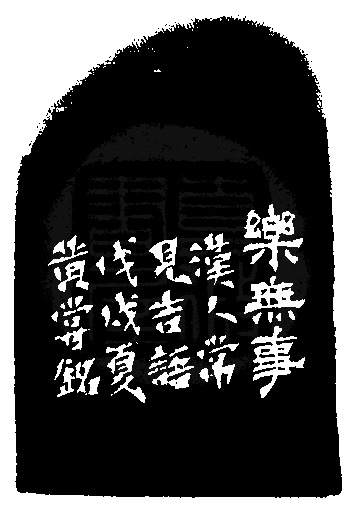 樂無事
漢人常
見吉語
戊戌夏
黃嘗銘